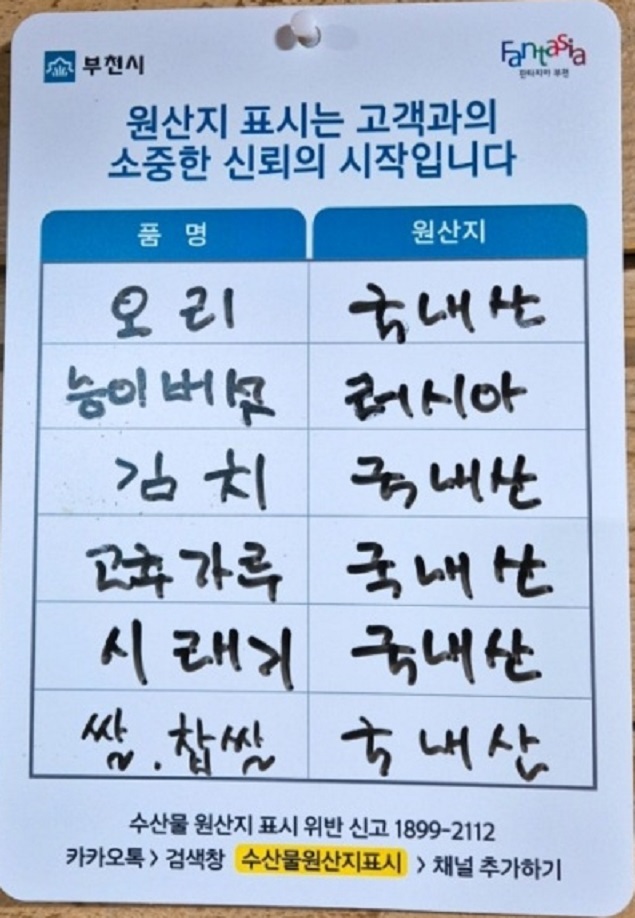 부천시
Fantasia
판타지아 부천
원산지 표시는 고객과의
소중한 신뢰의 시작입니다
품 명 원산지
오리 국내산
능이버섯 러시아
김치 국내산
고추가루 국내산
시래기 국내산
쌀.찹쌀 국내산
수산물 원산지 표시 위반 신고 1899-2112
카카오톡 > 검색창 수산물원산지표시 > 채널 추가하기